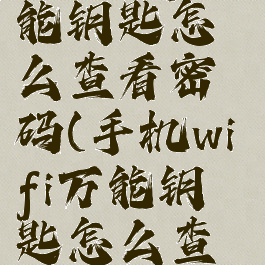 能钥匙怎
么查看密
码(手机wi
fi万能钥
匙怎么查